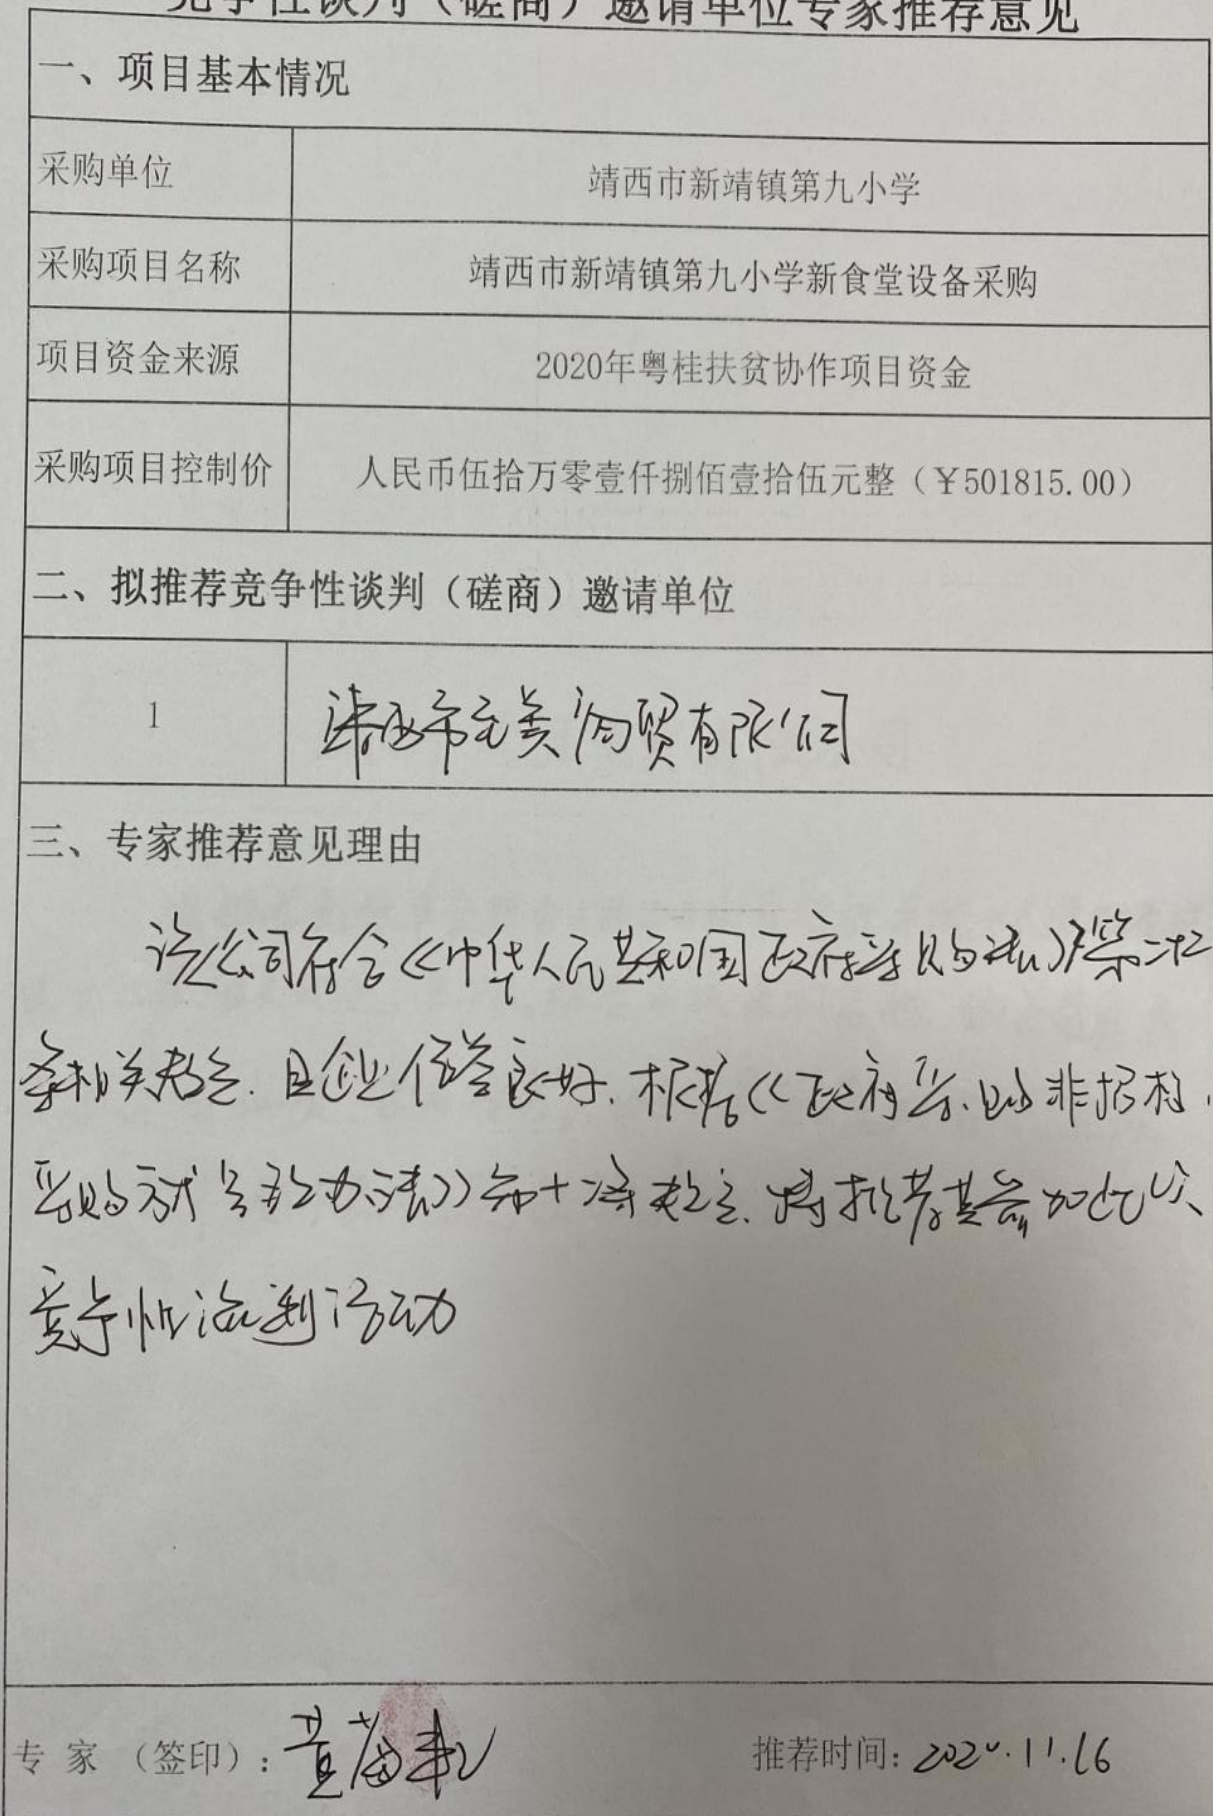 竞争性谈判（磋商）邀请单位专家推荐意见
一、项目基本情况
采购单位 靖西市新靖镇第九小学
采购项目名称 靖西市新靖镇第九小学新食堂设备采购
项目资金来源 2020年粤桂扶贫协作项目资金
采购项目控制价 人民币伍拾万零壹仟捌佰壹拾伍元整（￥501815.00）
二、拟推荐竞争性谈判（磋商）邀请单位
1 靖西市宏美商贸有限公司
三、专家推荐意见理由
该公司符合《中华人民共和国政府采购法》第二十二
条相关规定.且企业信誉良好.根据《政府采购非招标
采购方式管理办法》第十二条规定.特推荐其参加此次
竞争性谈判活动
专 家 （签印）： 黄
推荐时间：2020.11.16